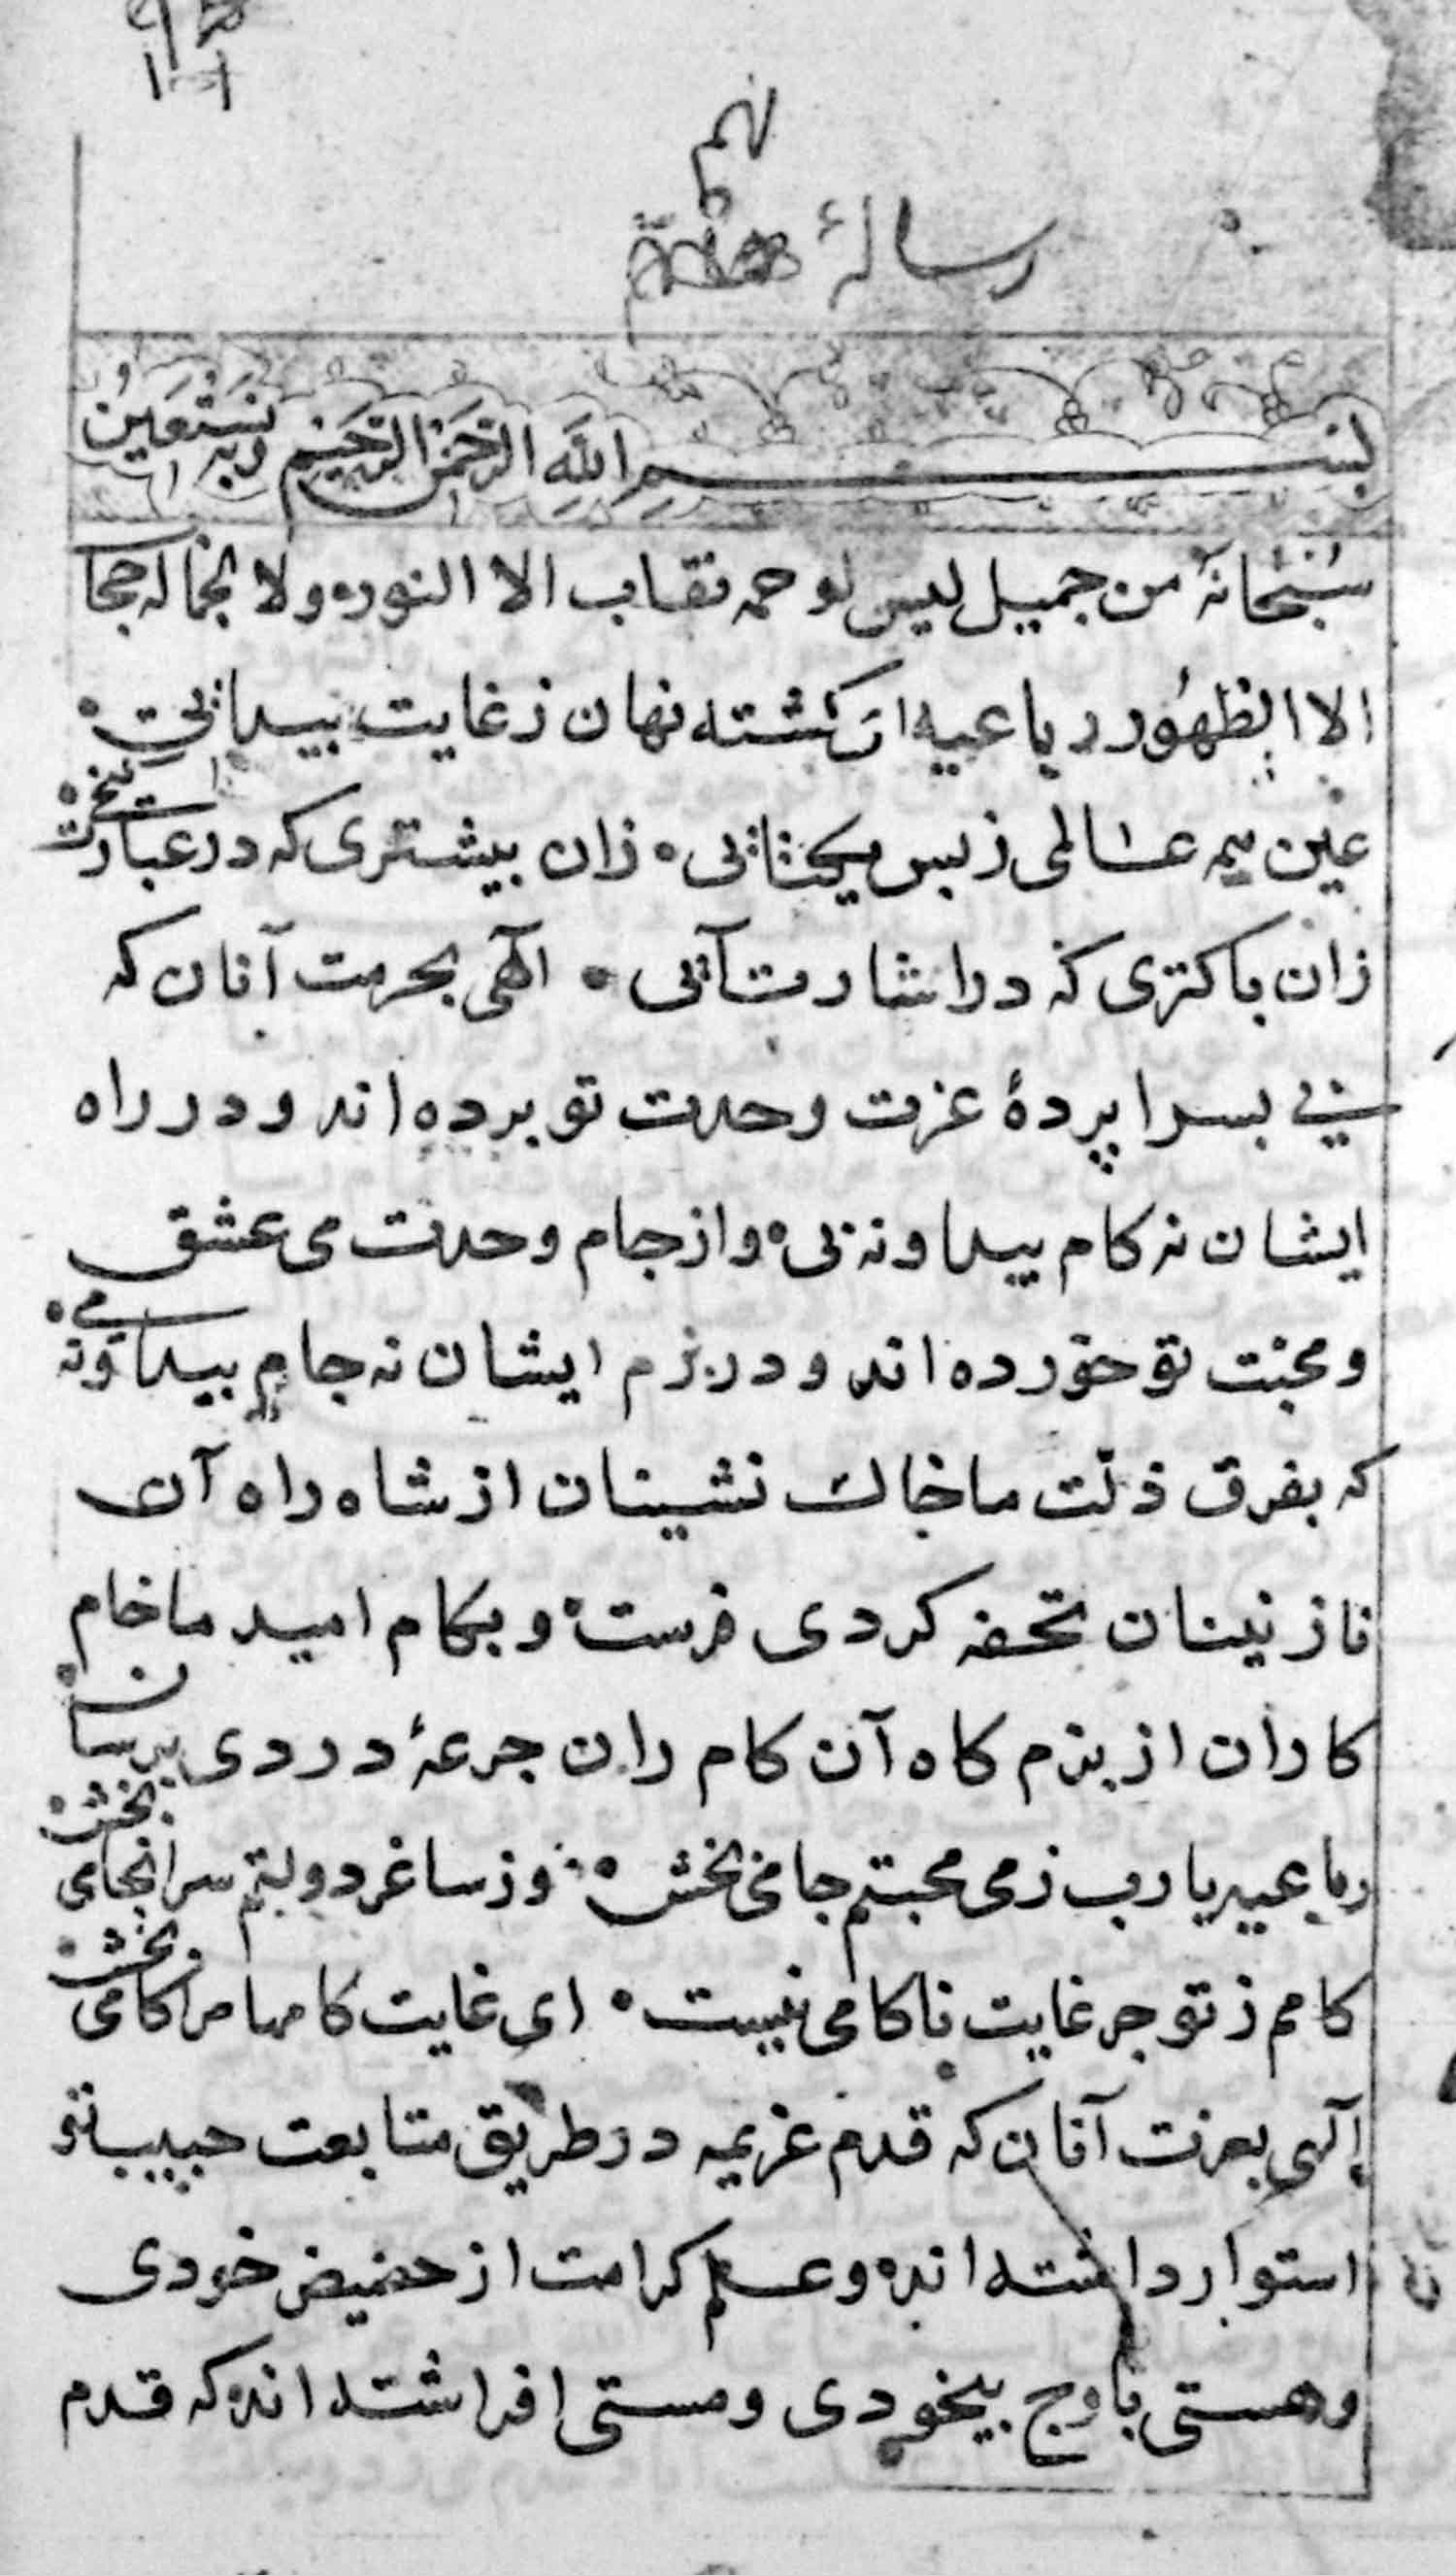 نهم
رسالهٔ
بسم الله الرحمن الرحیم وبه نستعین
سبحانهٔ من جمیل لیس لوجهه نقاب الا النوره ولا لجماله حجا
الا الظهور رباعیه ای گشته نهان ز غایت پیدائی
عین همه عالمی ز بس یکتائی ه زان بیشتری که در عبارت
زان پاکتری که در اشارت آئی ه الهی بحرمت آنان که
پی بسرا پردهٔ عزت وحدت تو برده اند و در راه
ایشان نه کام پیدا و نه پی ه و از جام وحدت می عشق
و محبت تو خورده اند و در بزم ایشان نه جام پیدا و نه می ه
که بفرق ذلت ما خاک نشینان از شاه راه آن
نازنینان تحفه کردی فرست ه و بکام امید ما خام
کاران از بزم کاه آن کام ران جرعهٔ دردی برسان
رباعیه یارب ز می محبتم جامی بخش ه وز ساغر دولتم سرانجامی بخش ه
کامم ز تو جز غایت ناکامی نیست ه ای غایت کامها مرا کامی بخش ه
الهی بعزت آنان که قدم عزیمه در طریق متابعت حبیب تو
استوار داشته اند ه و علم کرامت از حضیض خودی
و هستی باوج بیخودی و مستی افراشته اند که قدم